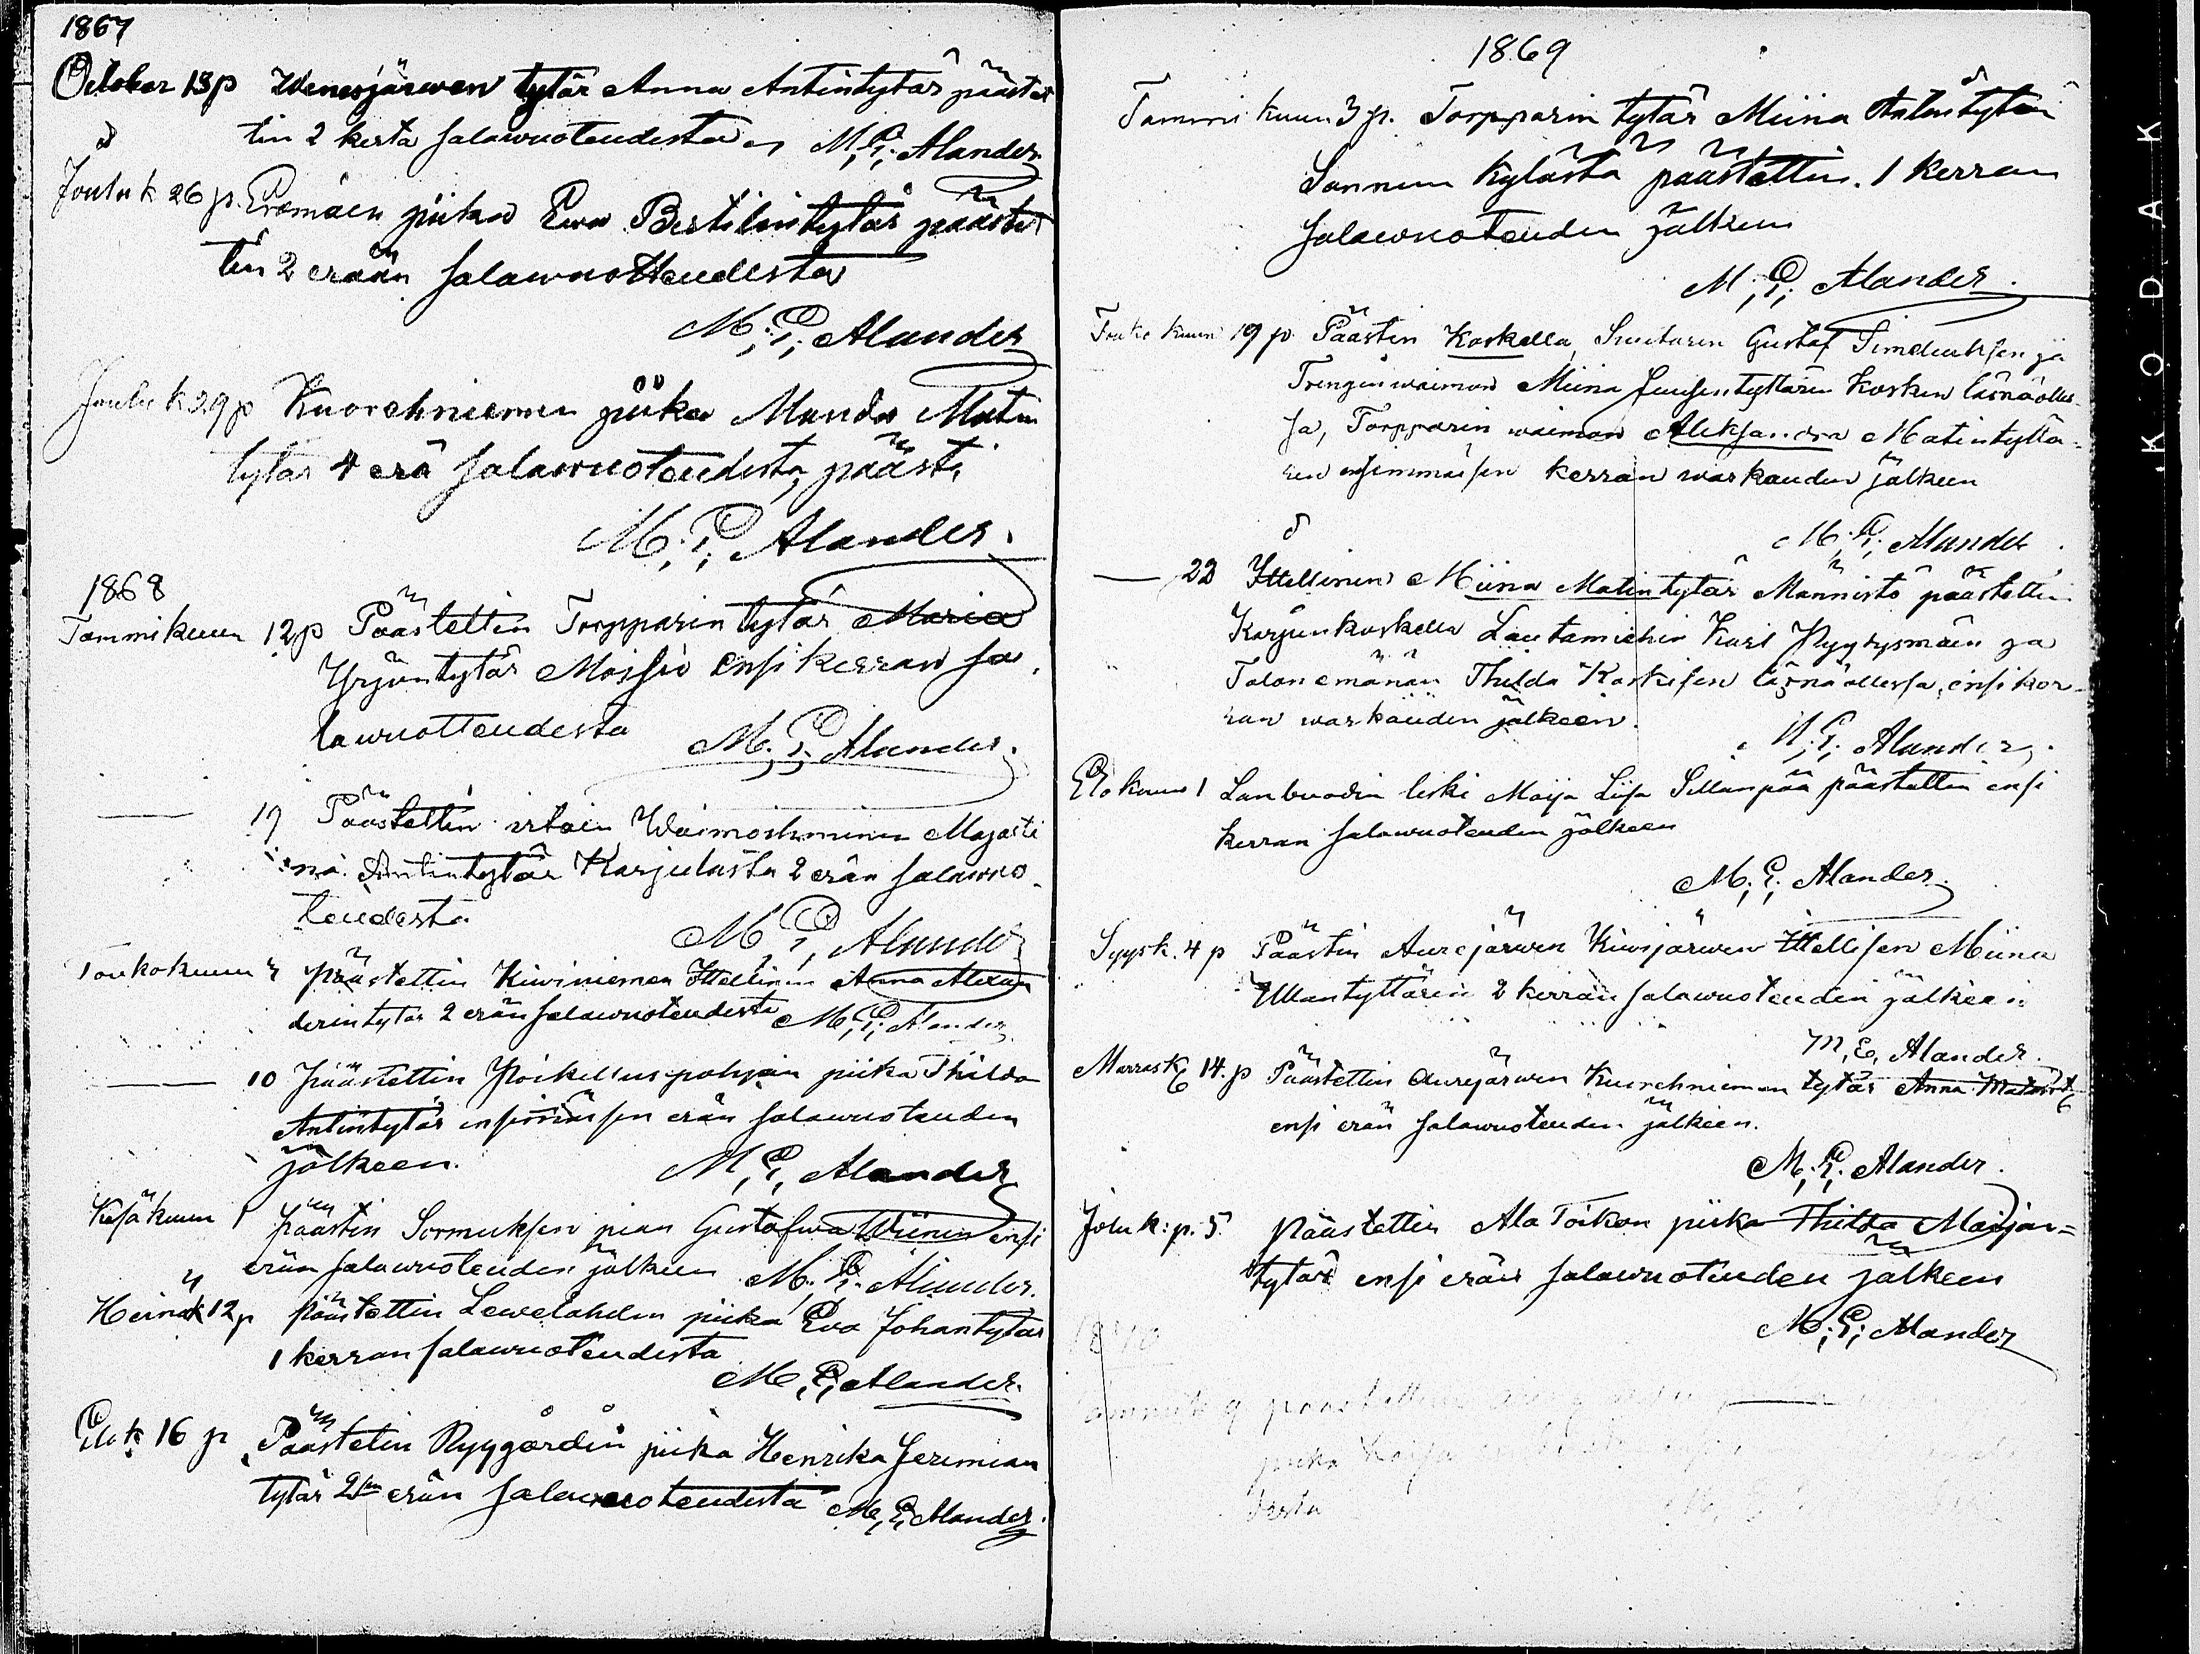 1867
October 13 p Wenesjärwen tytär Anna Antintytär päästet
tin 2 kerta salawuoteudesta M, E; Alander
Joulu k 26 p. Erämäen piika Ewa Bertilintytär päästet
tin 2 erään salawuotteudesta
M; E; Alander
Joulu k 29 p Kuorehniemen piika Manda Matin
tytär 4 erä salawuoteudesta, päästi
M. E; Alander.
1868
Tammikuun 12 p Päästettin Torpparin tytär Maria
Yrjöntytär Moisio ensi kerran sa
lawuotteudesta M. E; Alander.
— 19 Päästettin irtain Waimoihminen Majasti
na Antintytär Karjulasta 2 erän salawuo
teudesta M, E, Alander
Toukokuun päästettin Kiwiniemen Ittellinen Anna Alexan
derintytär 2 erän salawuoteudesta M, E; Alander
— 10 päästettin Poikelluspohjan piika Thilda
Antintytär ensimäisen erän salawuoteuden
jälkeen. M, E, Alander
Kesäkuun 1 päästin Sormuksen pian Gustafwa Wiinin ensi
erän salawuoteuden jälkeen M. E. Alander.
Heinäk 12 p päästettin Lewelahden piika Eva Johantytär
1 kerran salawuoteudesta
M, E, Alander.
Elok 16 p Päästetin Ryygårdin piika Henrika Jeremian
tytär 2sen erän salawuoteudesta M, E, Alander.
1869
Tammi kuun 3 p. Torpparin tytär Miina Antintytär
kylästä päästettin. 1 kerran
salawuoteuden jälkeen
M; E; Alander.
Touko kuun 19 p Päästin Koskella Suutarin Gustaf Simeliuksen ja
Trengin waimon Miina Juusentyttären Kosken läsnäolles
sa, Torpparin waimon Aleksandra Matintyttä-
ren ensimmäisen kerran warkauden jälkeen
M. E; Alander.
— 22 Ittellinen Miina Matintytär Männistö päästettin
Karjunkoskella Lautamiehin Karl Pyyrysmäen ja
Talonemänän Thilda Koskisen läsnäollessa, ensi ker-
ran warkauden jälkeen.
M; E; Alander.
Elokuun 1 leski Maija Liisa Sillanpää päästettin ensi
kerran salawuoteuden jälkeen
M; E; Alander.
Syysk. 4 p Päästin Aurejärwen Kiwijärwen Ittellisen Miina
Ullantyttären 2 kerran salawuoteuden jälkeen
M, E, Alander.
Marrask 14. p Päästettin Aurejärwen Kuorehniemen tytär Anna Matint
ensi erän salawuoteuden jälkeen.
M. E; Alander.
Joluk: p. 5. päästettin Ala Toikon piika Thilda Maijan=
tytär ensi erän salawuoteuden jälkeen
M; E; Alander
1870
Tammik 9 päästettin
piika Kaija
desta
KODAK